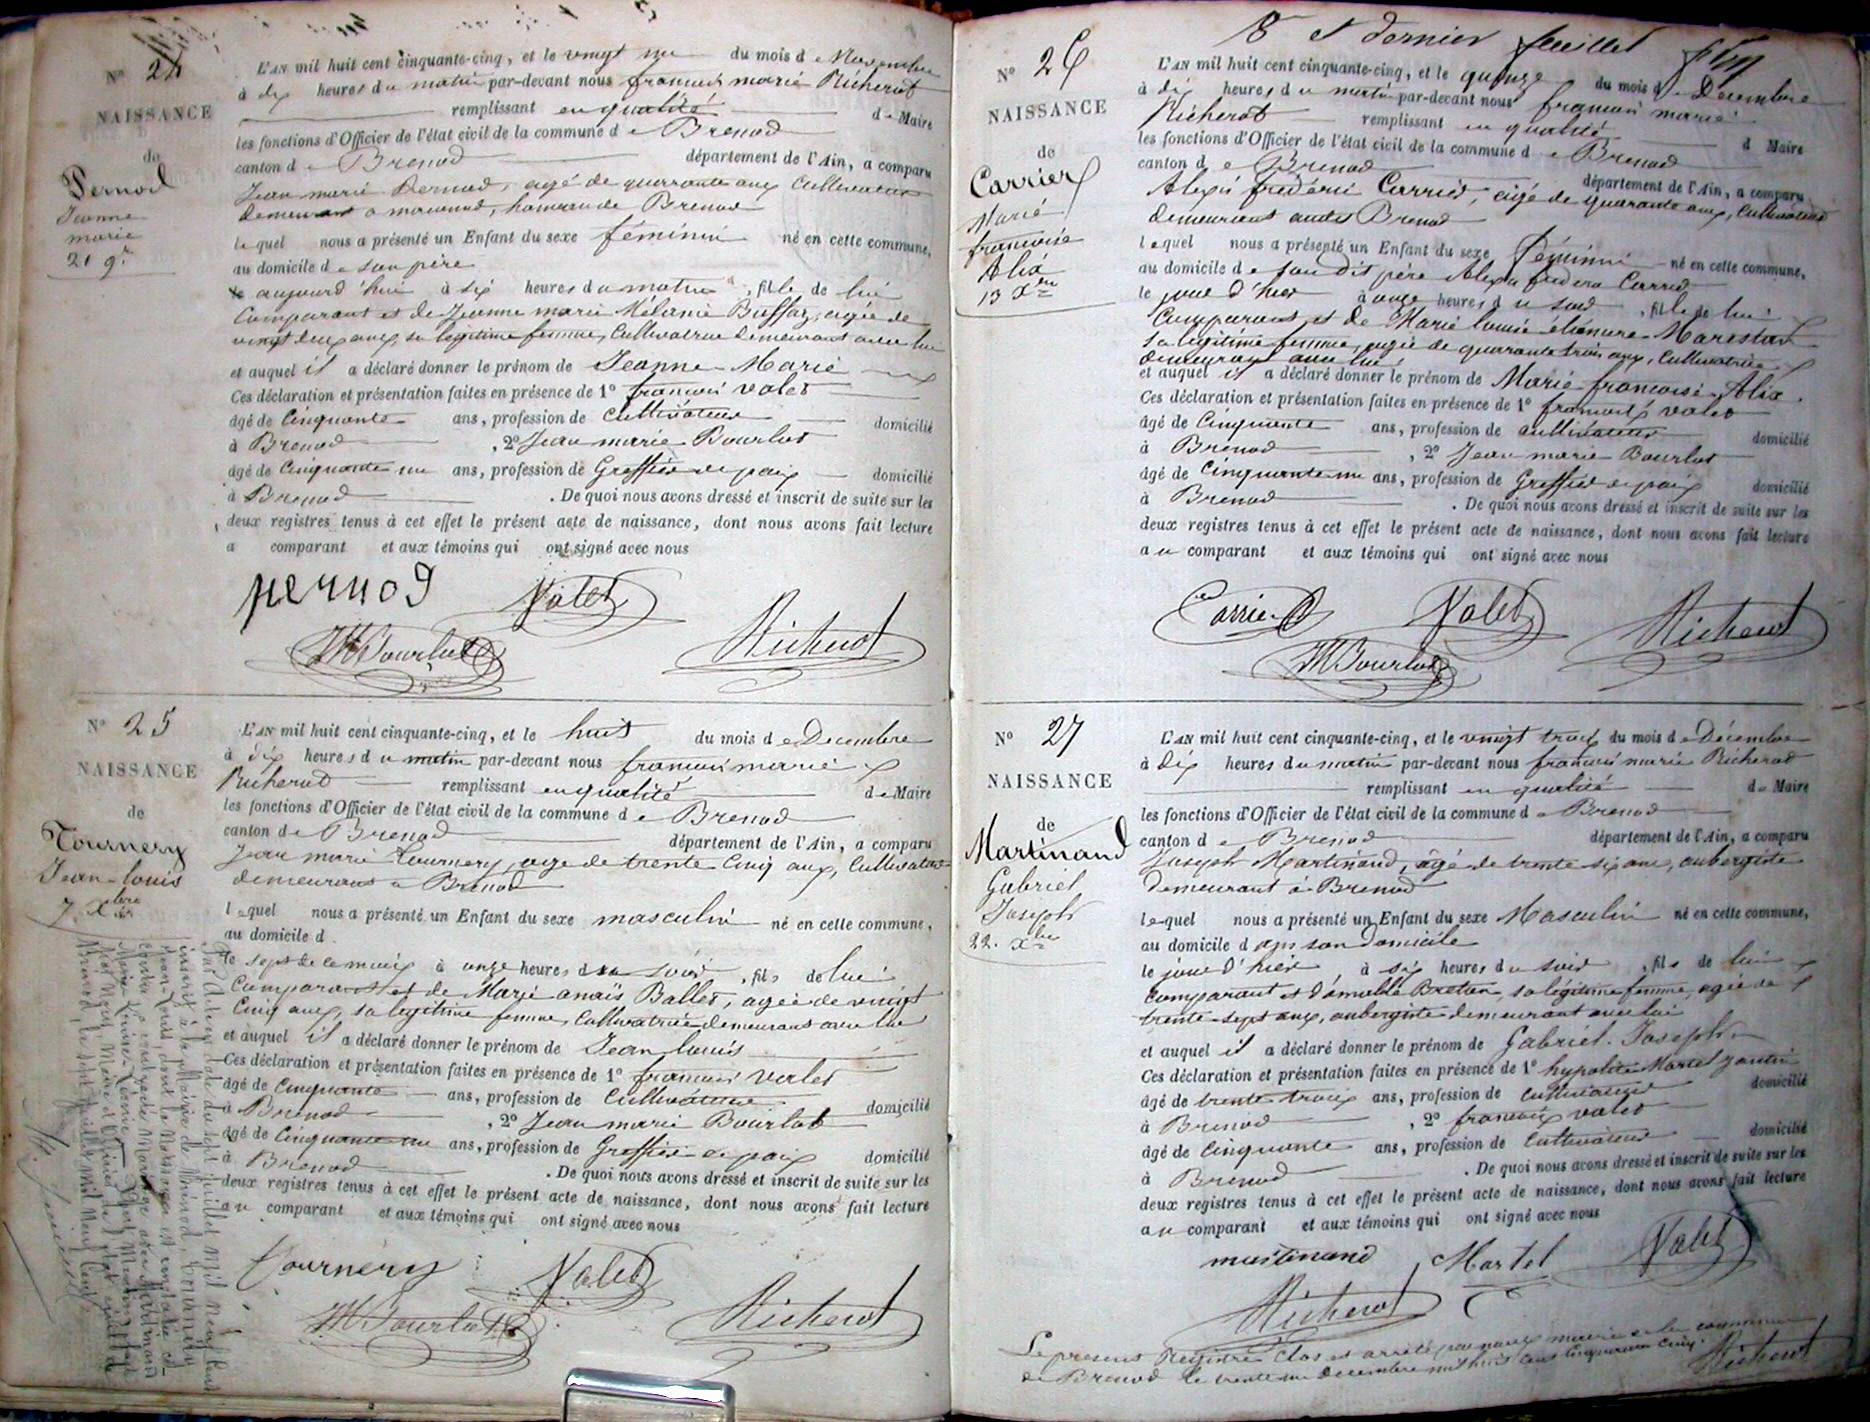 N° 24
NAISSANCE
de
Pernod
Jeanne
marie
21 9re
L'AN mil huit cent cinquante-cinq, et le vingt un du mois de Novembre
à dix heures du matin par-devant nous francois marie Richerot
remplissant en qualité de Maire
les fonctions d'Officier de l'état civil de la commune de Brenod
canton de Brenod département de l'Ain, a comparu
Jean marie Pernod, agé de quarante ans Cultivateur
demeurant a macconod, hameau de Brenod
lequel nous a présenté un Enfant du sexe féminin né en cette commune,
au domicile de son père
le aujourd'hui à six heures du matin, fille de lui
Comparant et de Jeanne marie Mélanie Buffaz, agée de
vingt deux ans, sa légitime femme, Cultivatrice demeurant avec lui
et auquel il a déclaré donner le prénom de Jeanne Marie
Ces déclaration et présentation faites en présence de 1° francois valet
âgé de Cinquante ans, profession de Cultivateur domicilié
à Brenod, 2° Jean marie Bourlot
âgé de Cinquante un ans, profession de Greffier de paix domicilié
à Brenod. De quoi nous avons dressé et inscrit de suite sur les
deux registres tenus à cet effet le présent acte de naissance, dont nous avons fait lecture
a comparant et aux témoins qui ont signé avec nous
pernod Valet
JMBourlot Richerot
N° 25
NAISSANCE
de
Tournery
Jean-louis
7 Xbre
L'AN mil huit cent cinquante-cinq, et le huit du mois de Decembre
à dix heures du matin par-devant nous francois marie
Richerot remplissant en qualité de Maire
les fonctions d'Officier de l'état civil de la commune de Brenod
canton de Brenod département de l'Ain, a comparu
Jean marie Tournery, age de trente Cinq ans, Cultivateur
demeurant a Brenod
lequel nous a présenté un Enfant du sexe masculin né en cette commune,
au domicile d
le sept de ce mois à onze heures du soir, fils de lui
Comparant et de Marie anaïs Ballet, agée de vingt
Cinq ans, sa légitime femme, Cultivatrice demeurant avec lui
et auquel il a déclaré donner le prénom de Jean louis
Ces déclaration et présentation faites en présence de 1° francois Valet
âgé de Cinquante ans, profession de Cultivateur domicilié
à Brenod, 2° Jean marie Bourlot
âgé de Cinquante un ans, profession de Greffier de paix domicilié
à Brenod. De quoi nous avons dressé et inscrit de suite sur les
deux registres tenus à cet effet le présent acte de naissance, dont nous avons fait lecture
au comparant et aux témoins qui ont signé avec nous
Tournery Valet
JMBourlot Richerot
Par acte en date du sept juillet mil neuf cent
inscrit à la Mairie de Tournery
Jean-Louis dont la Naissance est constatée ci-
contre a contracté Mariage avec Martinand
Marie Louise
Brénod, le sept juillet mil neuf cent
8 et dernier feuillet
N° 26
NAISSANCE
de
Carrier
Marie
francoise
Alix
13 Xbre
L'AN mil huit cent cinquante-cinq, et le quinze du mois de Decembre
à dix heures du matin par-devant nous francois marie
Richerot remplissant en qualité d Maire
les fonctions d'Officier de l'état civil de la commune de Brenod
canton de Brenod département de l'Ain, a comparu
Alexis frédéric Carrier, agé de quarante ans, Cultivateur
demeurant audit Brenod
lequel nous a présenté un Enfant du sexe féminin né en cette commune,
au domicile de sondit père Alexis frederic Carrier
le jour d'hier à onze heures du soir, fille de lui
Comparant et de Marie louise éléonore Marestan
sa légitime femme, agée de quarante trois ans, Cultivatrice
demeurant avec lui
et auquel il a déclaré donner le prénom de Marie francoise Alix.
Ces déclaration et présentation faites en présence de 1° francois valet
âgé de Cinquante ans, profession de cultivateur domicilié
à Brenod, 2° Jean marie Bourlot
âgé de Cinquante un ans, profession de Greffier de paix domicilié
à Brenod. De quoi nous avons dressé et inscrit de suite sur les
deux registres tenus à cet effet le présent acte de naissance, dont nous avons fait lecture
au comparant et aux témoins qui ont signé avec nous
Carrier Valet Richerot
JMBourlot
N° 27
NAISSANCE
de
Martinand
Gabriel
Joseph
22. Xbre
L'AN mil huit cent cinquante-cinq, et le vingt trois du mois de Décembre
à dix heures du matin par-devant nous francois marie Richerot
remplissant en qualité de Maire
les fonctions d'Officier de l'état civil de la commune de Brenod
canton de Brenod département de l'Ain, a comparu
Joseph Martinand, âgé de trente six ans, aubergiste
demeurant à Brenod
lequel nous a présenté un Enfant du sexe Masculin né en cette commune,
au domicile dans son domicile
le jour d'hier, à six heures du soir, fils de lui
comparant et d'aimable Breton, sa légitime femme, agée de
trente-sept ans, aubergiste demeurant avec lui
et auquel il a déclaré donner le prénom de Gabriel. Joseph
Ces déclaration et présentation faites en présence de 1° hypolite Martel
âgé de trente trois ans, profession de cultivateur domicilié
à Brenod, 2° francois valet
âgé de Cinquante ans, profession de Cultivateur domicilié
à Brenod. De quoi nous avons dressé et inscrit de suite sur les
deux registres tenus à cet effet le présent acte de naissance, dont nous avons fait lecture
au comparant et aux témoins qui ont signé avec nous
martinand Martel Valet
Richerot
Le present Registre Clos et arrêté par nous maire de la commune
de Brenod le trente un decembre mil huit cent Cinquante cinq.
Richerot